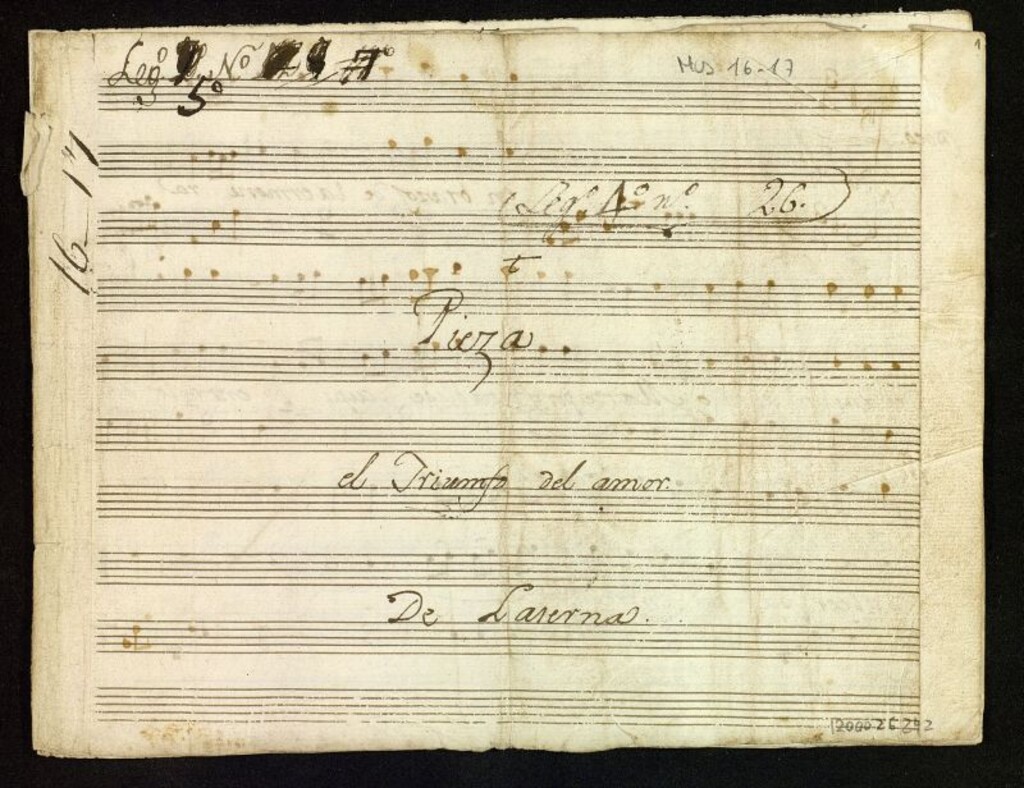 Leg.º Nº
5º
Mus 16-17
1
16-17
Leg.º 4º nº. 26.
t
Pieza
el Triumfo del amor.
De Laserna.
1200026292